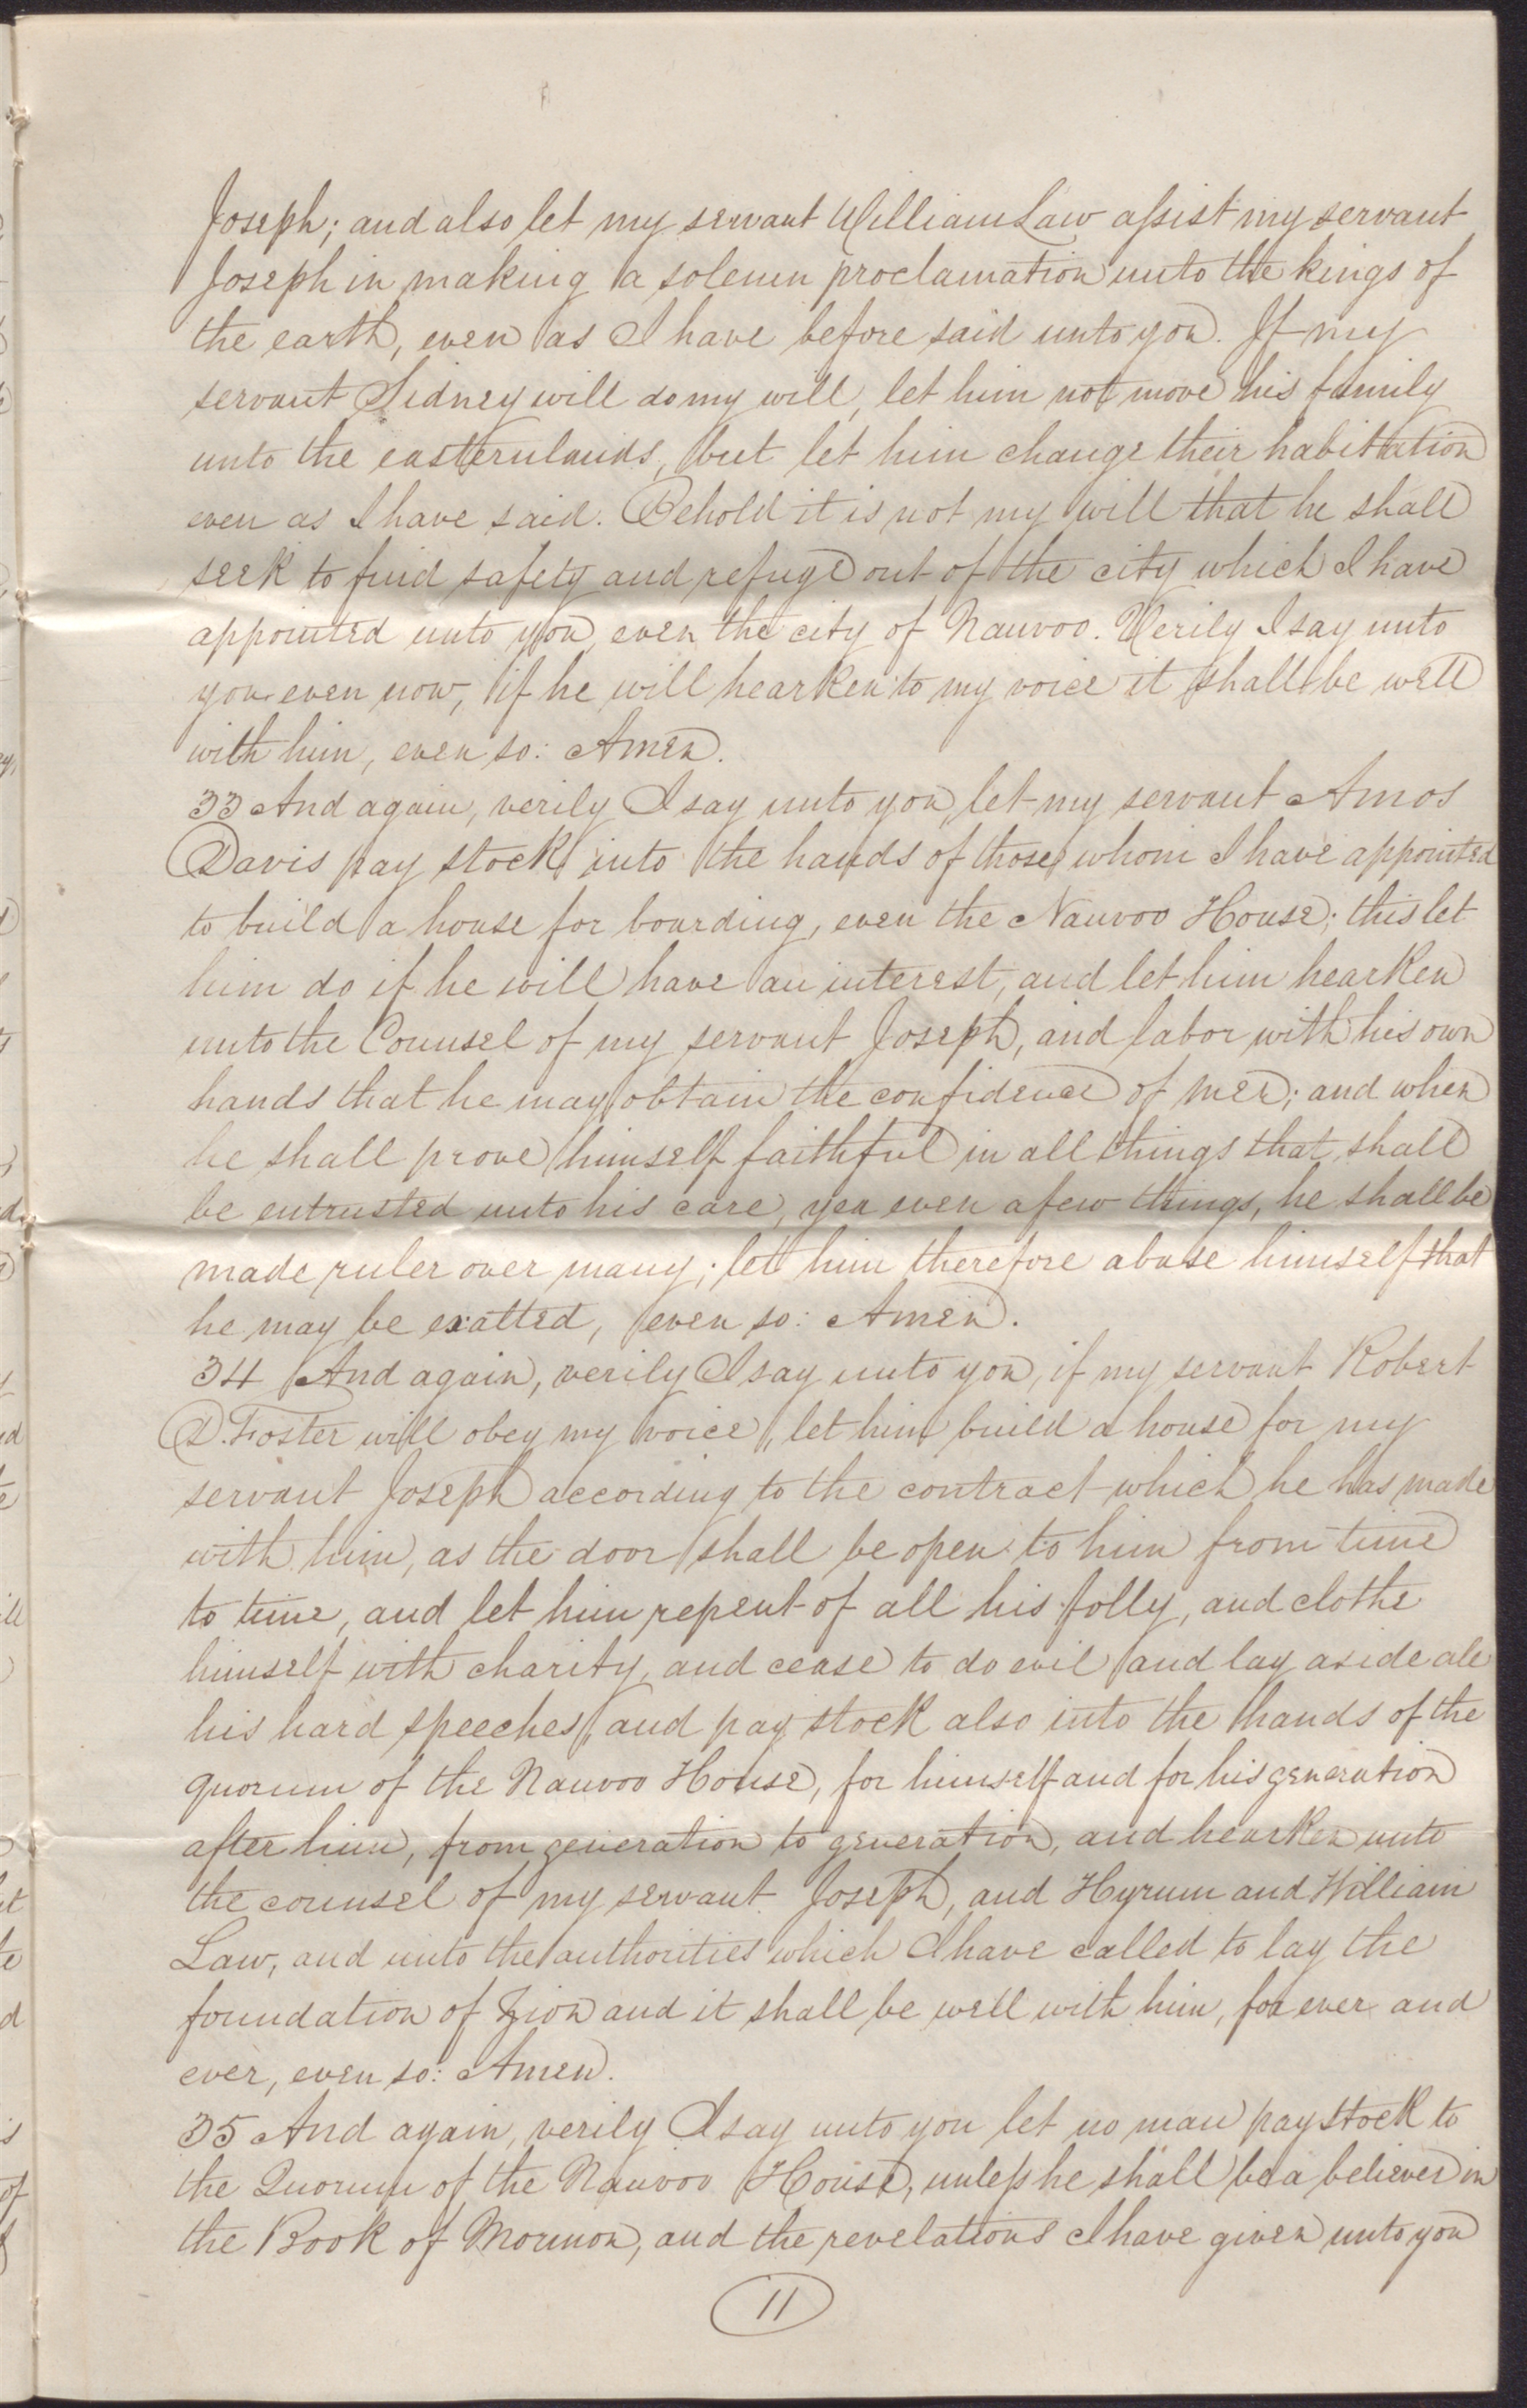 Joseph; and also let my servant William Law assist my servant
Joseph in making a solemn proclamation unto the kings of
the earth, even as I have before said unto you. If my
servant Sidney will do my will, let him not move his family
unto the eastern lands, but let him change their habitation
even as I have said. Behold it is not my will that he shall
seek to find safety and refuge out of the city which I have
appointed unto you, even the city of Nauvoo. Verily I say unto
you even now, if he will hearken to my voice it shall be well
with him, even so: Amen.
33 And again, verily I say unto you, let my servant Amos
Davis pay stock into the hands of those whom I have appointed
to build a house for boarding, even the Nauvoo House; this let
him do if he will have an interest, and let him hearken
unto the Counsel of my servant Joseph, and labor with his own
hands that he may obtain the confidence of men; and when
he shall prove himself faithful in all things that shall
be entrusted unto his care, yea even a few things, he shall be
made ruler over many; let him therefore abase himself that
he may be exalted, even so: Amen.
34 And again, verily I say unto you, if my servant Robert
D. Foster will obey my voice, let him build a house for my
servant Joseph according to the contract which he has made
with him, as the door shall be open to him from time
to time, and let him repent of all his folly, and clothe
himself with charity, and cease to do evil and lay aside all
his hard speeches, and pay stock also into the hands of the
quorum of the Nauvoo House, for himself and for his generation
after him, from generation to generation, and hearken unto
the counsel of my servant Joseph, and Hyrum and William
Law, and unto the authorities which I have called to lay the
foundation of Zion and it shall be well with him, for ever and
ever, even so: Amen.
35 And again, verily I say unto you let no man pay stock to
the Quorum of the Nauvoo House, unless he shall be a believer in
the Book of Mormon, and the revelations I have given unto you
11